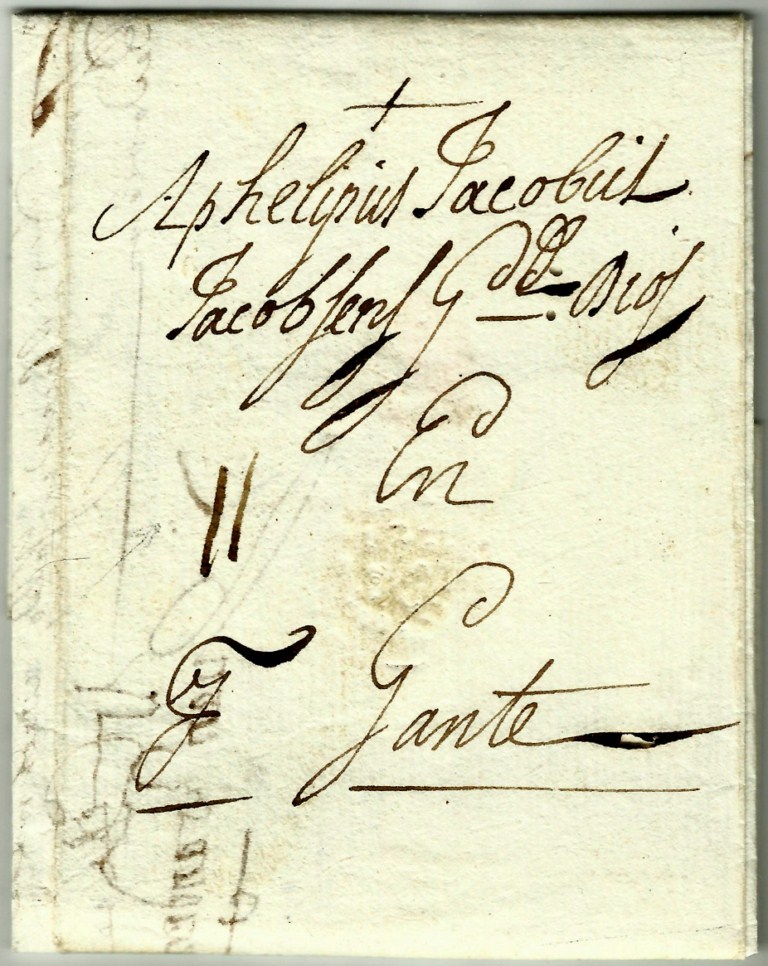 +
A phelipus Jacobus
Jacobsens G.de Dios
En
||
Gante